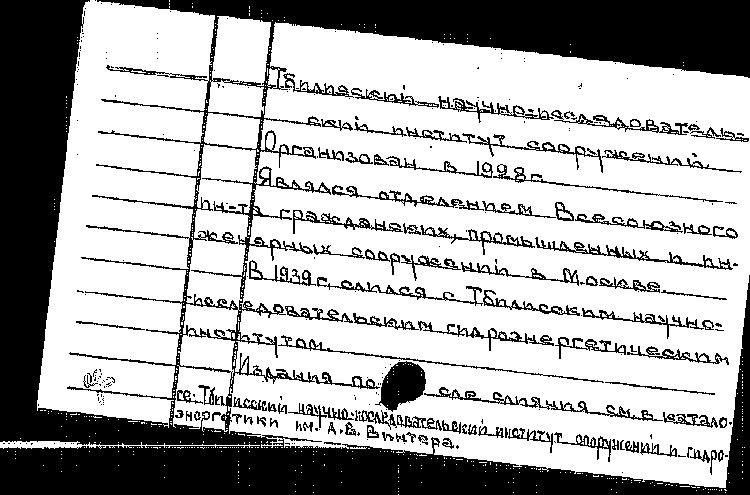 Тбилисский научно-исследователь-
ский институт сооружений.
Организован в 1928 г.
Являлся отделением Всесоюзного
ин-та гражданских, промышленных и ин-
женерных сооружений в Москве.
В 1939 г. слился с Тбилисским научно-
исследовательским гидроэнергетическим
институтом.
Издания после слияния см. в катало-
ге: Тбилисский научно-исследовательский институт сооружений и гидро-
энергетики им. А.В. Винтера.